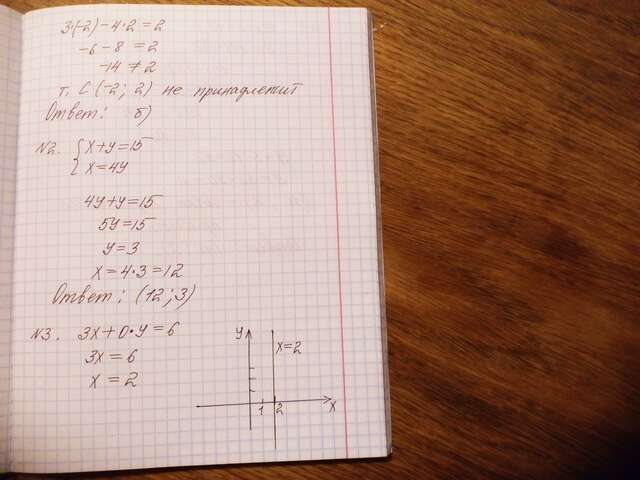 3·(-2) - 4·2 = 2
-6 - 8 = 2
-14 ≠ 2
т. С (-2; 2) не принадлежит
Ответ: б)
№2. { х+у=15
х=4у
4у+у=15
5у=15
у=3
х=4·3=12
Ответ: (12;3)
№3. 3х+0·у=6
3х=6
х=2
у
х=2
1 2 х